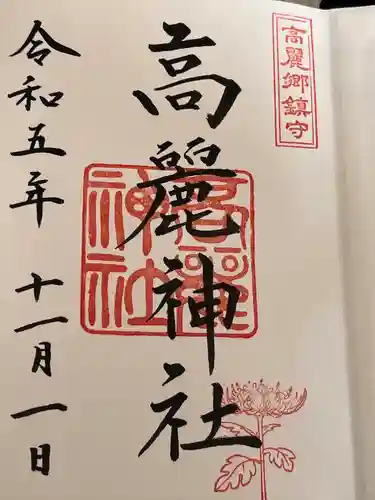 高麗郷鎮守
高麗神社
高麗
神社
令和五年 十一月一日